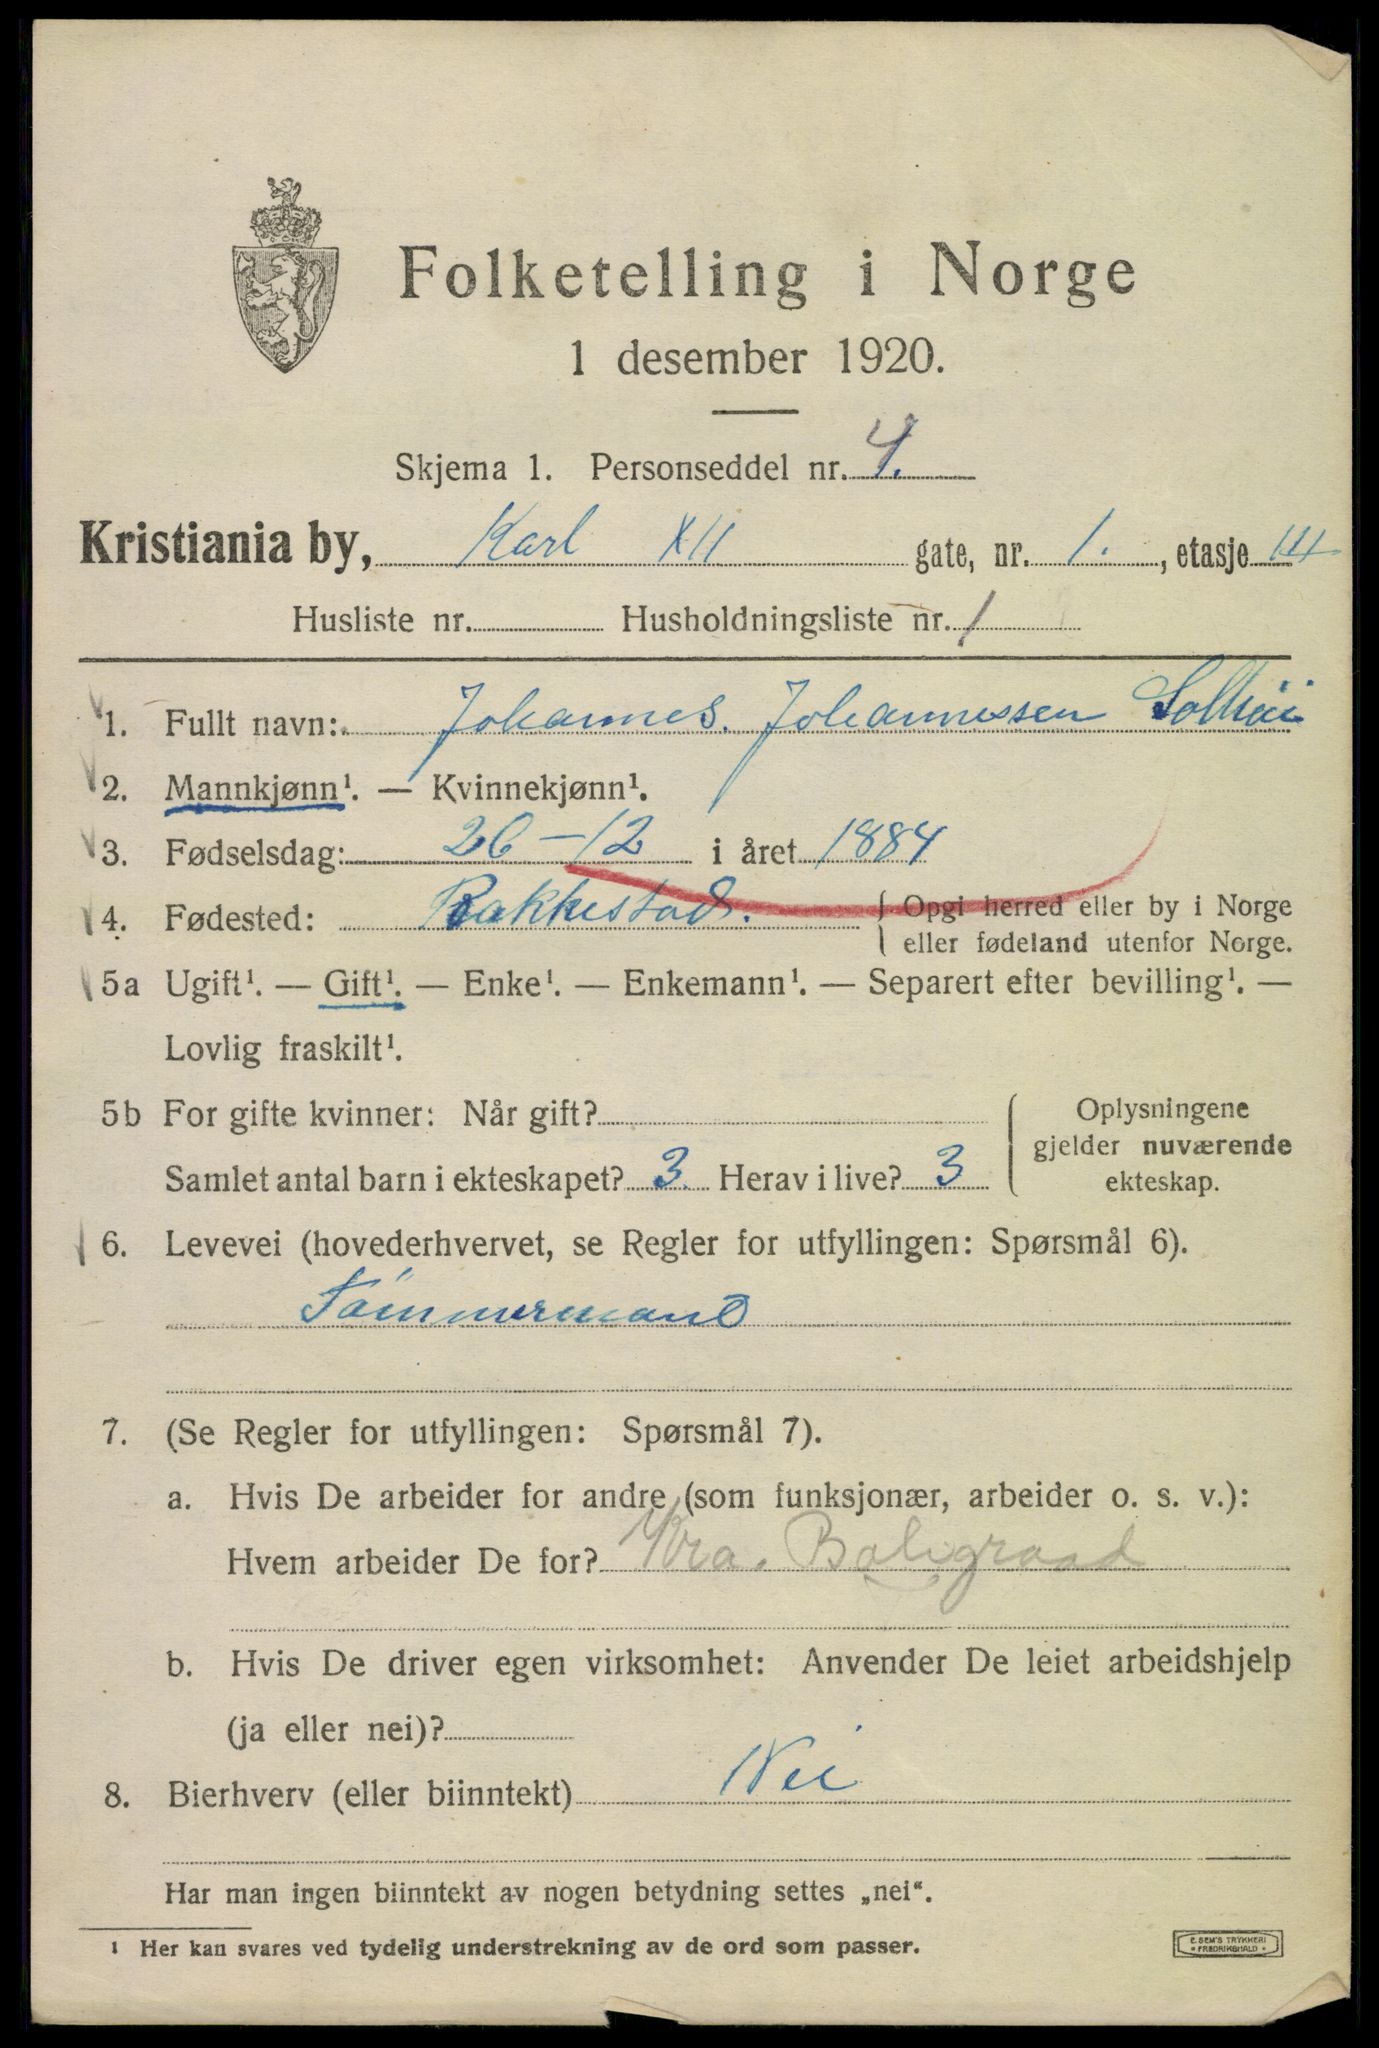 Folketelling i Norge
1 desember 1920.
Skjema 1. Personseddel nr. 4.
Kristiania by, Karl XII gate, nr. 1., etasje III
Husliste nr. Husholdningsliste nr. 1
1. Fullt navn: Johannes. Johannessen
2. Mannkjønn¹. — Kvinnekjønn¹.
3. Fødselsdag: 26-12 i året 1884
4. Fødested: Rakkestad. { Opgi herred eller by i Norge
eller fødeland utenfor Norge.
5a Ugift¹. — Gift¹. — Enke¹. — Enkemann¹. — Separert efter bevilling¹. —
Lovlig fraskilt¹.
5b For gifte kvinner: Når gift? { Oplysningene
gjelder nuværende
Samlet antal barn i ekteskapet? 3. Herav i live? 3 ekteskap.
6. Levevei (hovederhvervet, se Regler for utfyllingen: Spørsmål 6).
Tömmermand
7. (Se Regler for utfyllingen: Spørsmål 7).
a. Hvis De arbeider for andre (som funksjonær, arbeider o. s. v.):
Hvem arbeider De for? Kra.
b. Hvis De driver egen virksomhet: Anvender De leiet arbeidshjelp
(ja eller nei)?
8. Bierhverv (eller biinntekt) Nei
Har man ingen biinntekt av nogen betydning settes „nei“.
¹ Her kan svares ved tydelig understrekning av de ord som passer.
E. SEM'S TRYKKERI
• FREDRIKSHALD •